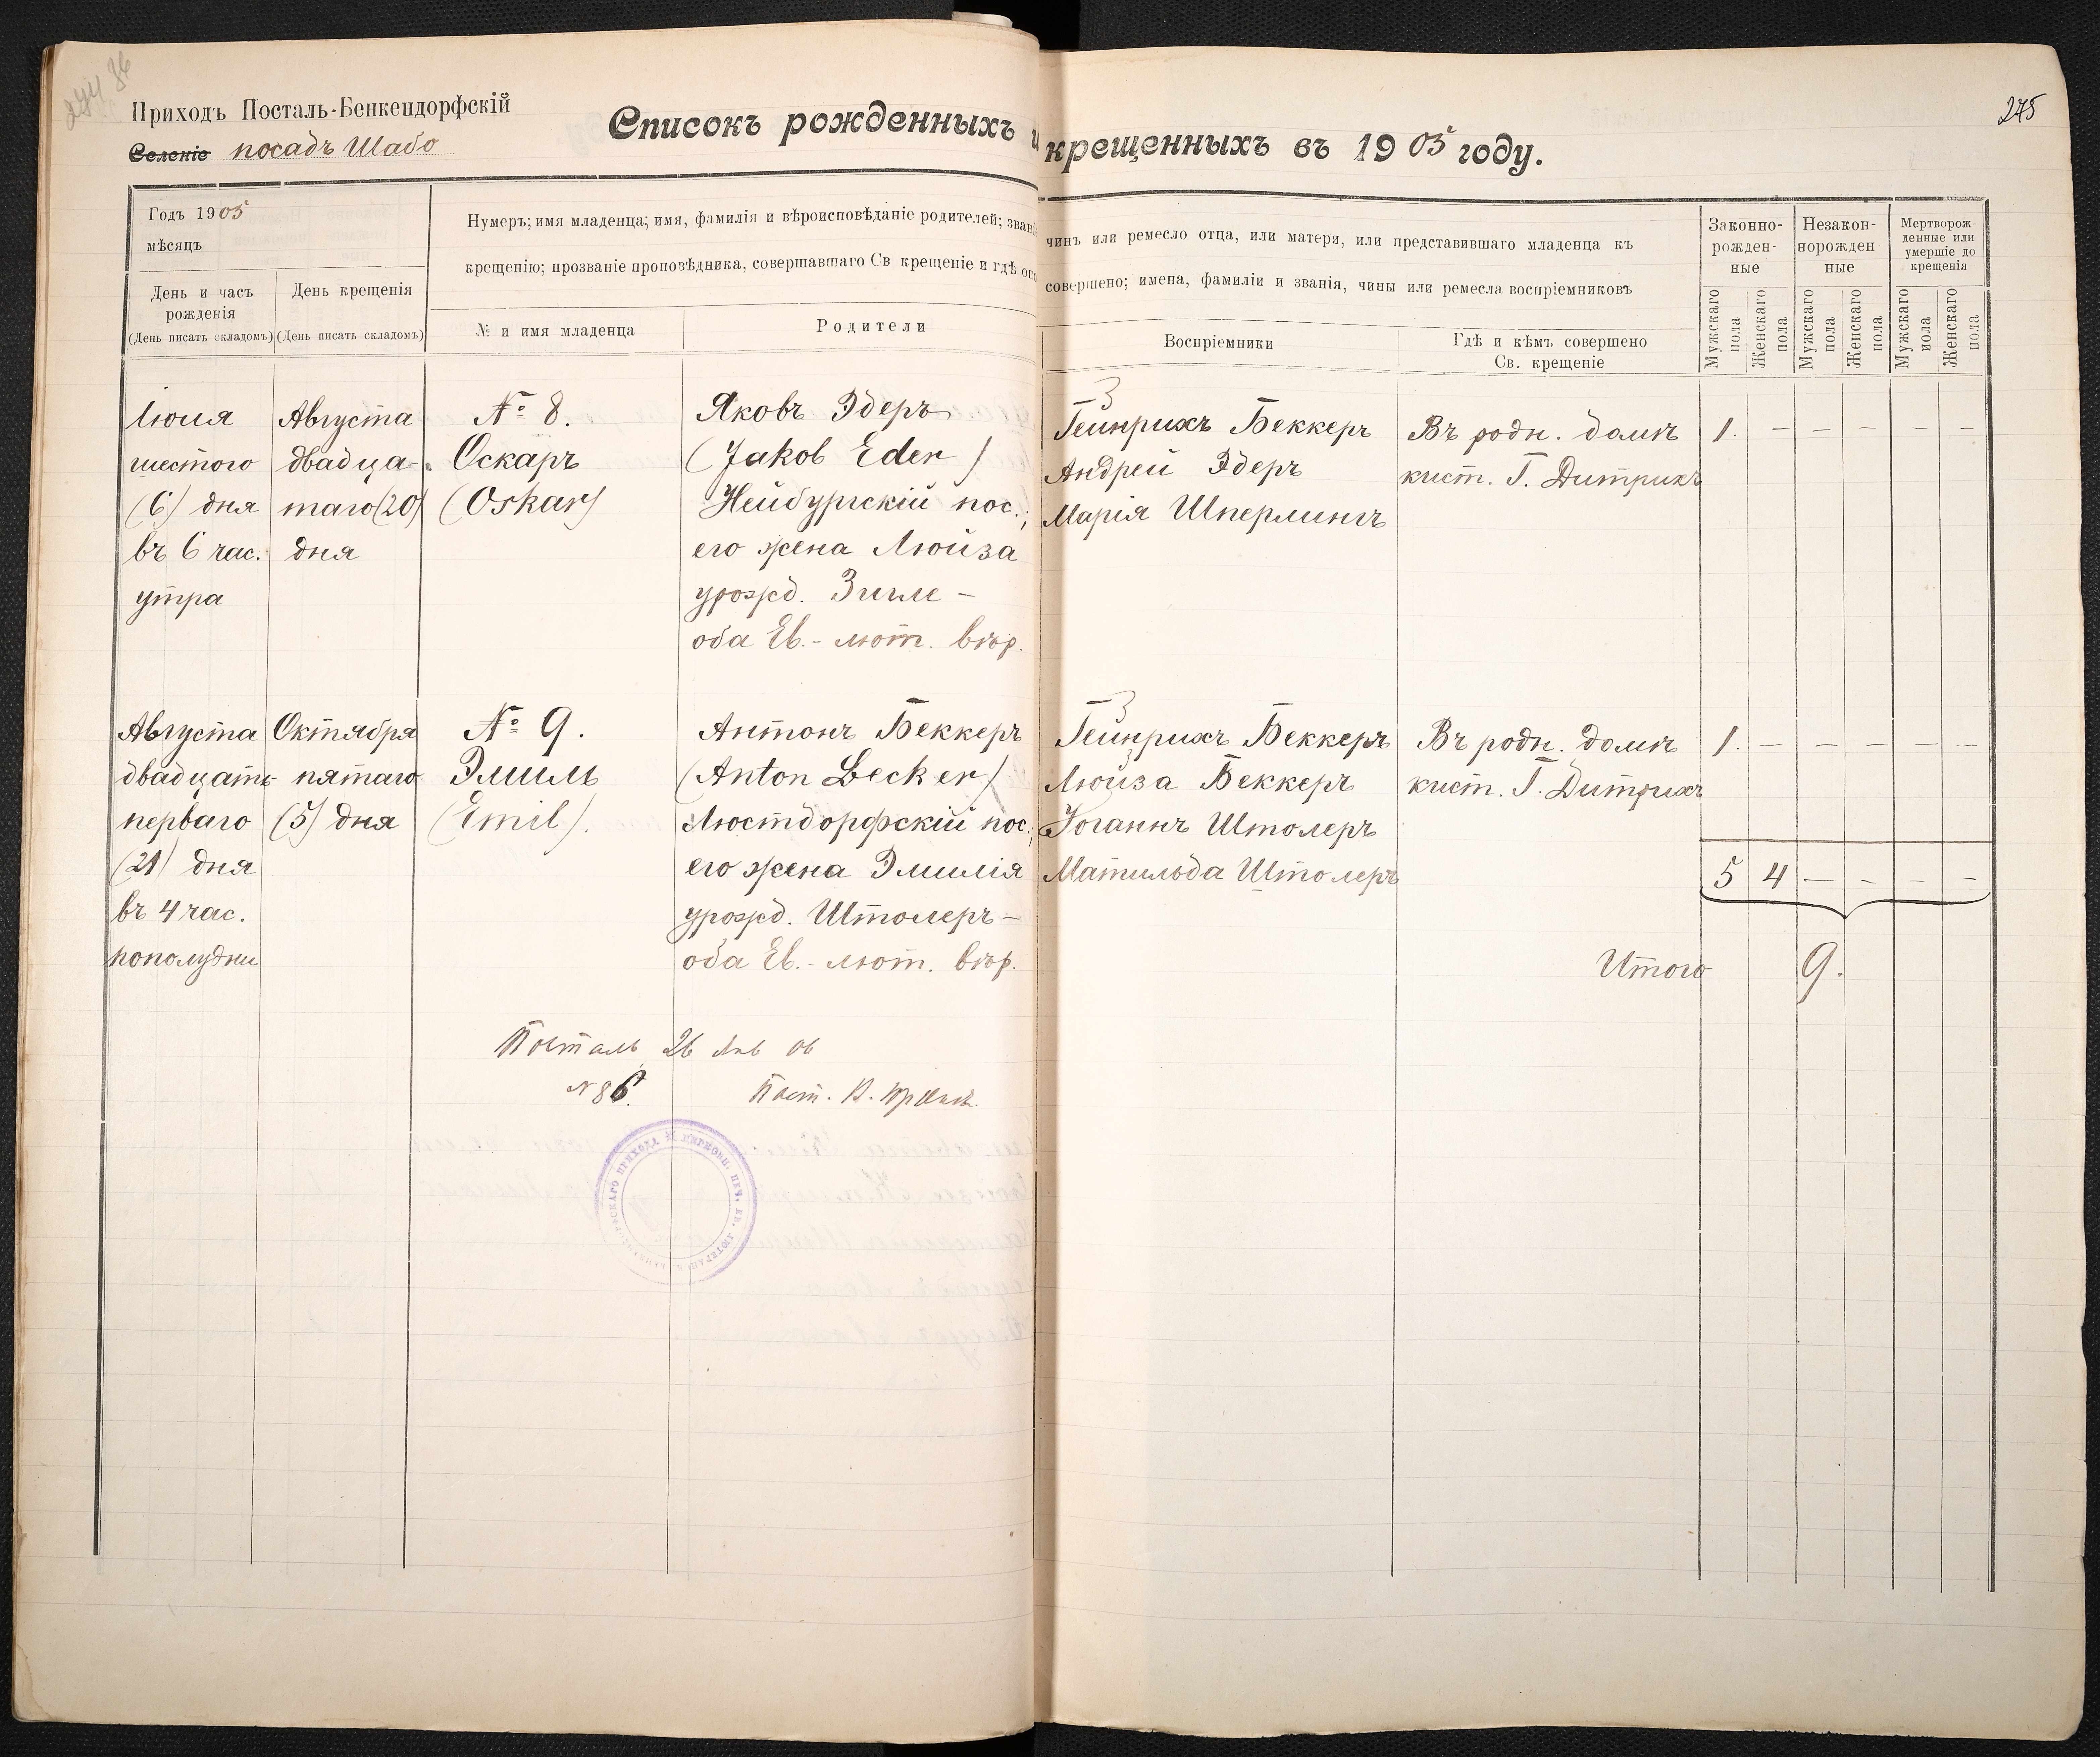 Приходъ Посталь-Бенкендорфскій
Селеніе посадъ Шабо
Списокъ рожденныхъ и крещенныхъ въ 1905 году.
275
Годъ 1905
мѣсяцъ
День и часъ
рожденія
(День писать складомъ)
День крещенія
(День писать складомъ)
Нумеръ; имя младенца; имя, фамилія и вѣроисповѣданіе родителей; званіе
чинъ или ремесло отца, или матери, или представившаго младенца къ
крещенію; прозваніе проповѣдника, совершавшаго Св крещеніе и гдѣ оно
совершено; имена, фамиліи и званія, чины или ремесла воспріемниковъ
№ и имя младенца
Родители
Воспріемники
Гдѣ и кѣмъ совершено
Св. крещеніе
Законно-
рожден-
ные
Незакон-
норожден
ные
Мертворож-
денные или
умершіе до
крещенія
Мужскаго
пола
Женскаго
пола
Мужскаго
пола
Женскаго
пола
Мужскаго
пола
Женскаго
пола
Іюля
шестого
(6) дня
въ 6 час.
утра
Августа
двадца-
таго (20)
дня
№ 8.
Оскаръ
(Oskar)
Яковъ Эдеръ
(Jakob Eder)
Нейбургскій пос.;
его жена Люиза
урожд. Зигле –
оба Ев.-лют. вѣр.
3
Гейнрихъ Беккеръ
Андрей Эдеръ
Марія Шперлингъ
Въ родн. домѣ
кист. Г. Дитрихъ
1. – – – – –
Августа
двадцать
перваго
(21) дня
въ 4 час.
пополудни
Октября
пятаго
(5) дня
№ 9.
Эмиль
(Emil).
Антонъ Беккеръ
(Anton Becker)
Люстдорфскій пос.;
его жена Эмилія
урожд. Штолеръ –
оба Ев.-лют. вѣр.
3
Гейнрихъ Беккеръ
Люиза Беккеръ
Іоганнъ Штолеръ
Матильда Штолеръ
Въ родн. домѣ
кист. Г. Дитрихъ
1. – – – – –
5 4 – – – –
Итого 9.
Посталь 26 Янв 06
№ 86.
Паст.